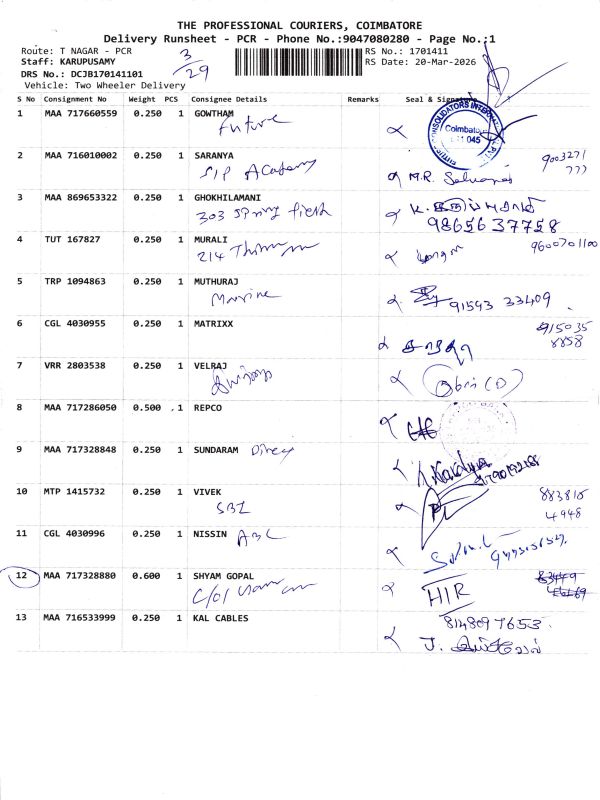 THE PROFESSIONAL COURIERS, COIMBATORE
Delivery Runsheet - PCR - Phone No.:9047080280 - Page No.:1
Route: T NAGAR - PCR
RS No.: 1701411
Staff: KARUPUSAMY
RS Date: 20-Mar-2026
3/29
DRS No.: DCJB170141101
Vehicle: Two Wheeler Delivery
S No Consignment No Weight PCS Consignee Details Remarks Seal & Signature
1 MAA 717660559 0.250 1 GOWTHAM
Future
Coimbato
045
2 MAA 716010002 0.250 1 SARANYA
SIP Academy
M.R.
9003271
777
3 MAA 869653322 0.250 1 GHOKHILAMANI
303 Spring field
9865637758
4 TUT 167827 0.250 1 MURALI
214
9600701100
5 TRP 1094863 0.250 1 MUTHURAJ
Marine
91593 33409
6 CGL 4030955 0.250 1 MATRIXX
915035
8858
7 VRR 2803538 0.250 1 VELRAJ
8 MAA 717286050 0.500 1 REPCO
9 MAA 717328848 0.250 1 SUNDARAM
10 MTP 1415732 0.250 1 VIVEK
SBI
883816
4948
11 CGL 4030996 0.250 1 NISSIN
12 MAA 717328880 0.600 1 SHYAM GOPAL
C/O
HIR
13 MAA 716533999 0.250 1 KAL CABLES
8148097653
J.